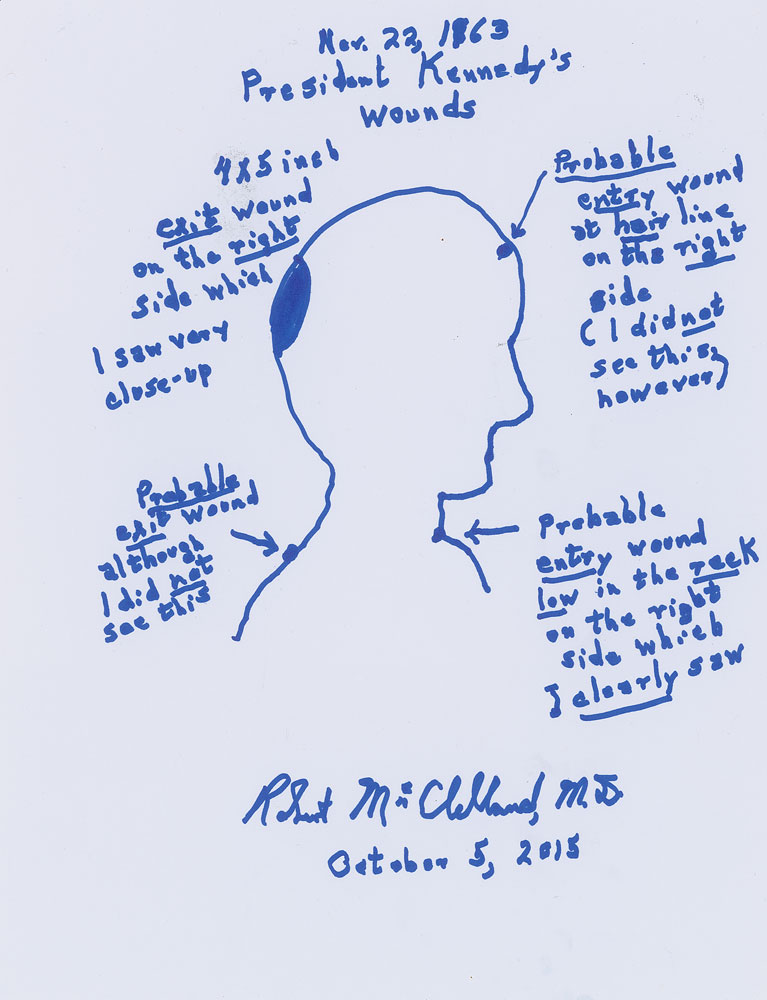 Nov. 22, 1963
President Kennedy's
Wounds
4x5 inch
exit wound
on the right
side which
I saw very
close-up
Probable
entry wound
at hair line
on the right
side
(I did not
see this,
however)
Probable
exit wound
although
I did not
see this
Probable
entry wound
low in the neck
on the right
side which
I clearly saw
Robert McClelland, M.D.
October 5, 2015